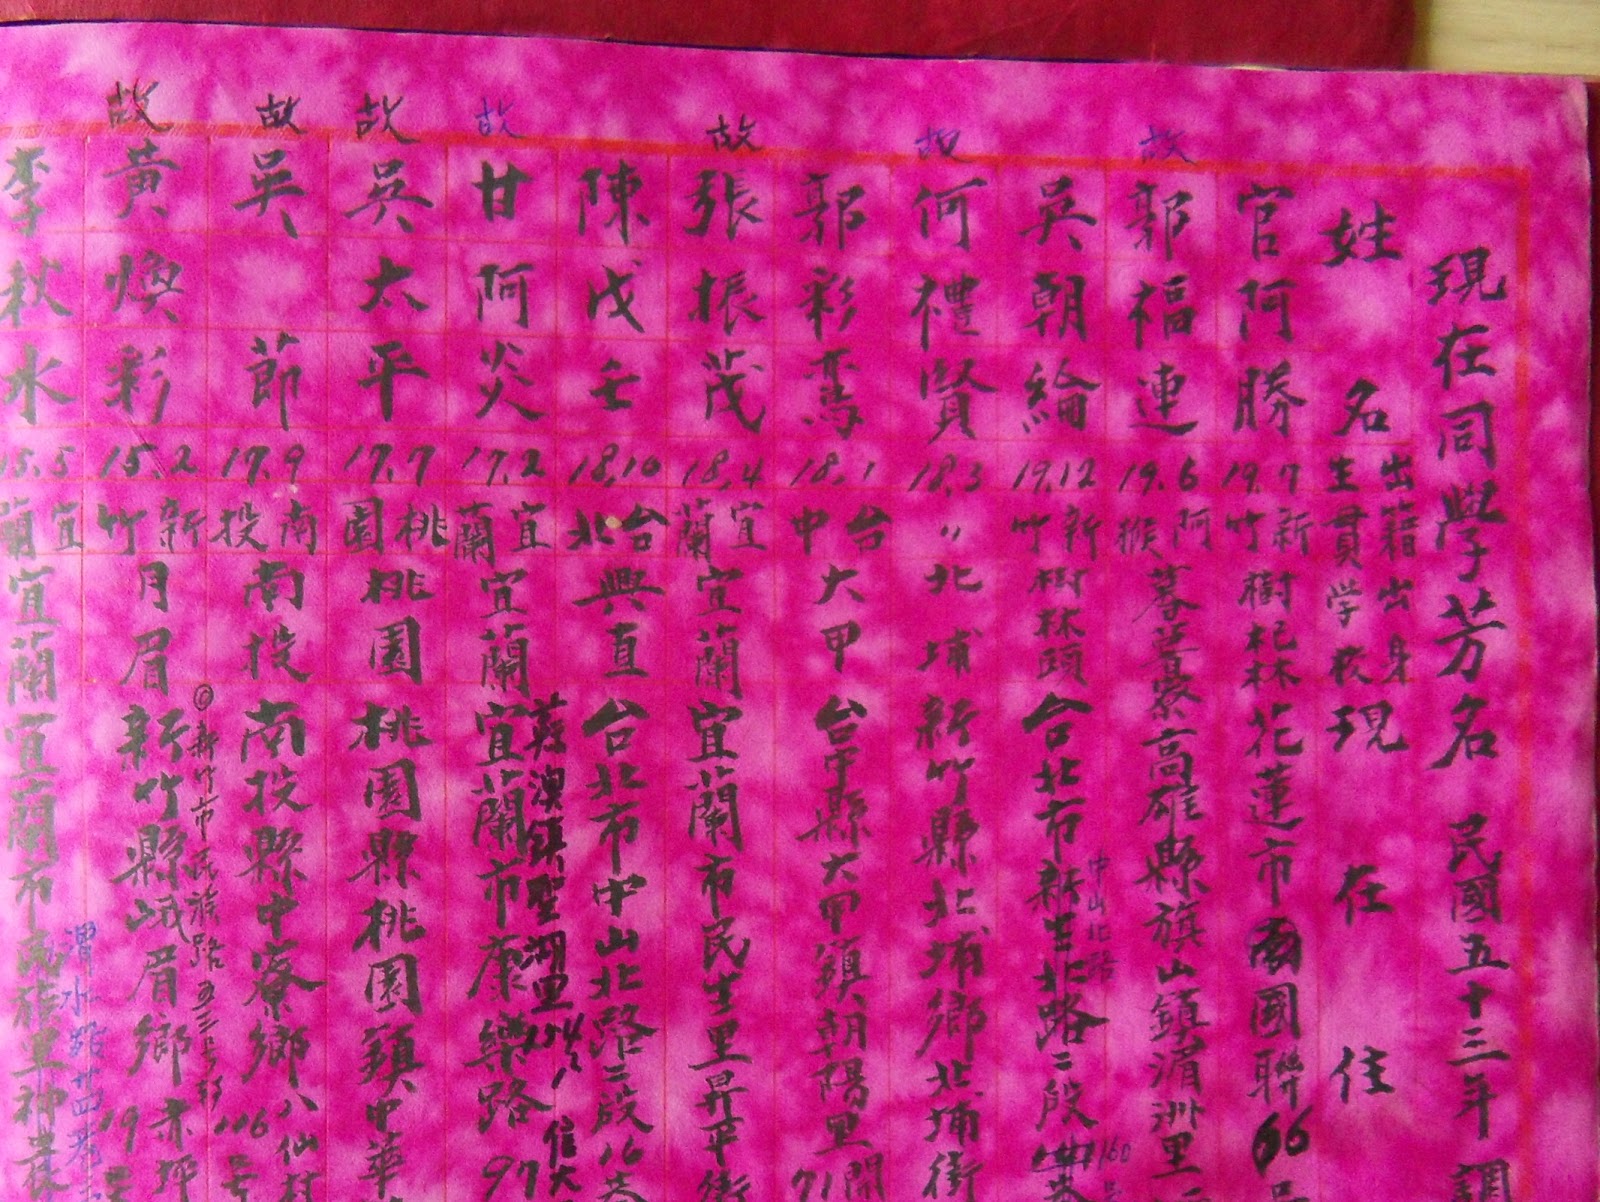 現在同學芳名 民國五十三年調
姓名 出生 籍貫 出身学校 現在住
官阿勝 19.7 新竹 樹杞林 花蓮市國聯66
故 郭福連 19.6 阿猴 蕃薯寮 高雄縣旗山鎮湄洲里
吳朝綸 19.12 新竹 樹林頭 台北市新生北路二段
中山北路
160
故 何禮賢 18.3 〃 北埔 新竹縣北埔鄉北埔街
郭彩鸞 18.1 台中 大甲 台中縣大甲鎮朝陽里 71
故 張振茂 18.4 宜蘭 宜蘭 宜蘭市民生里昇平街
陳戊壬 18.10 台北 興直 台北市中山北路二段16巷
蘇澳鎮聖湖里
故 甘阿炎 17.2 宜蘭 宜蘭 宜蘭市康樂路97
故 吳太平 17.7 桃園 桃園 桃園縣桃園鎮中華
故 吳節 17.9 南投 南投 南投縣中寮鄉八仙村
◎新竹市民族路五三号
故 黃煥彩 15.2 新竹 月眉 新竹縣峨眉鄉赤坪
渭水路廿四巷
李秋水 15.5 宜蘭 宜蘭 宜蘭市